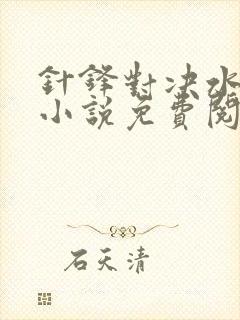 針鋒對決水
小說免費閱
石天清